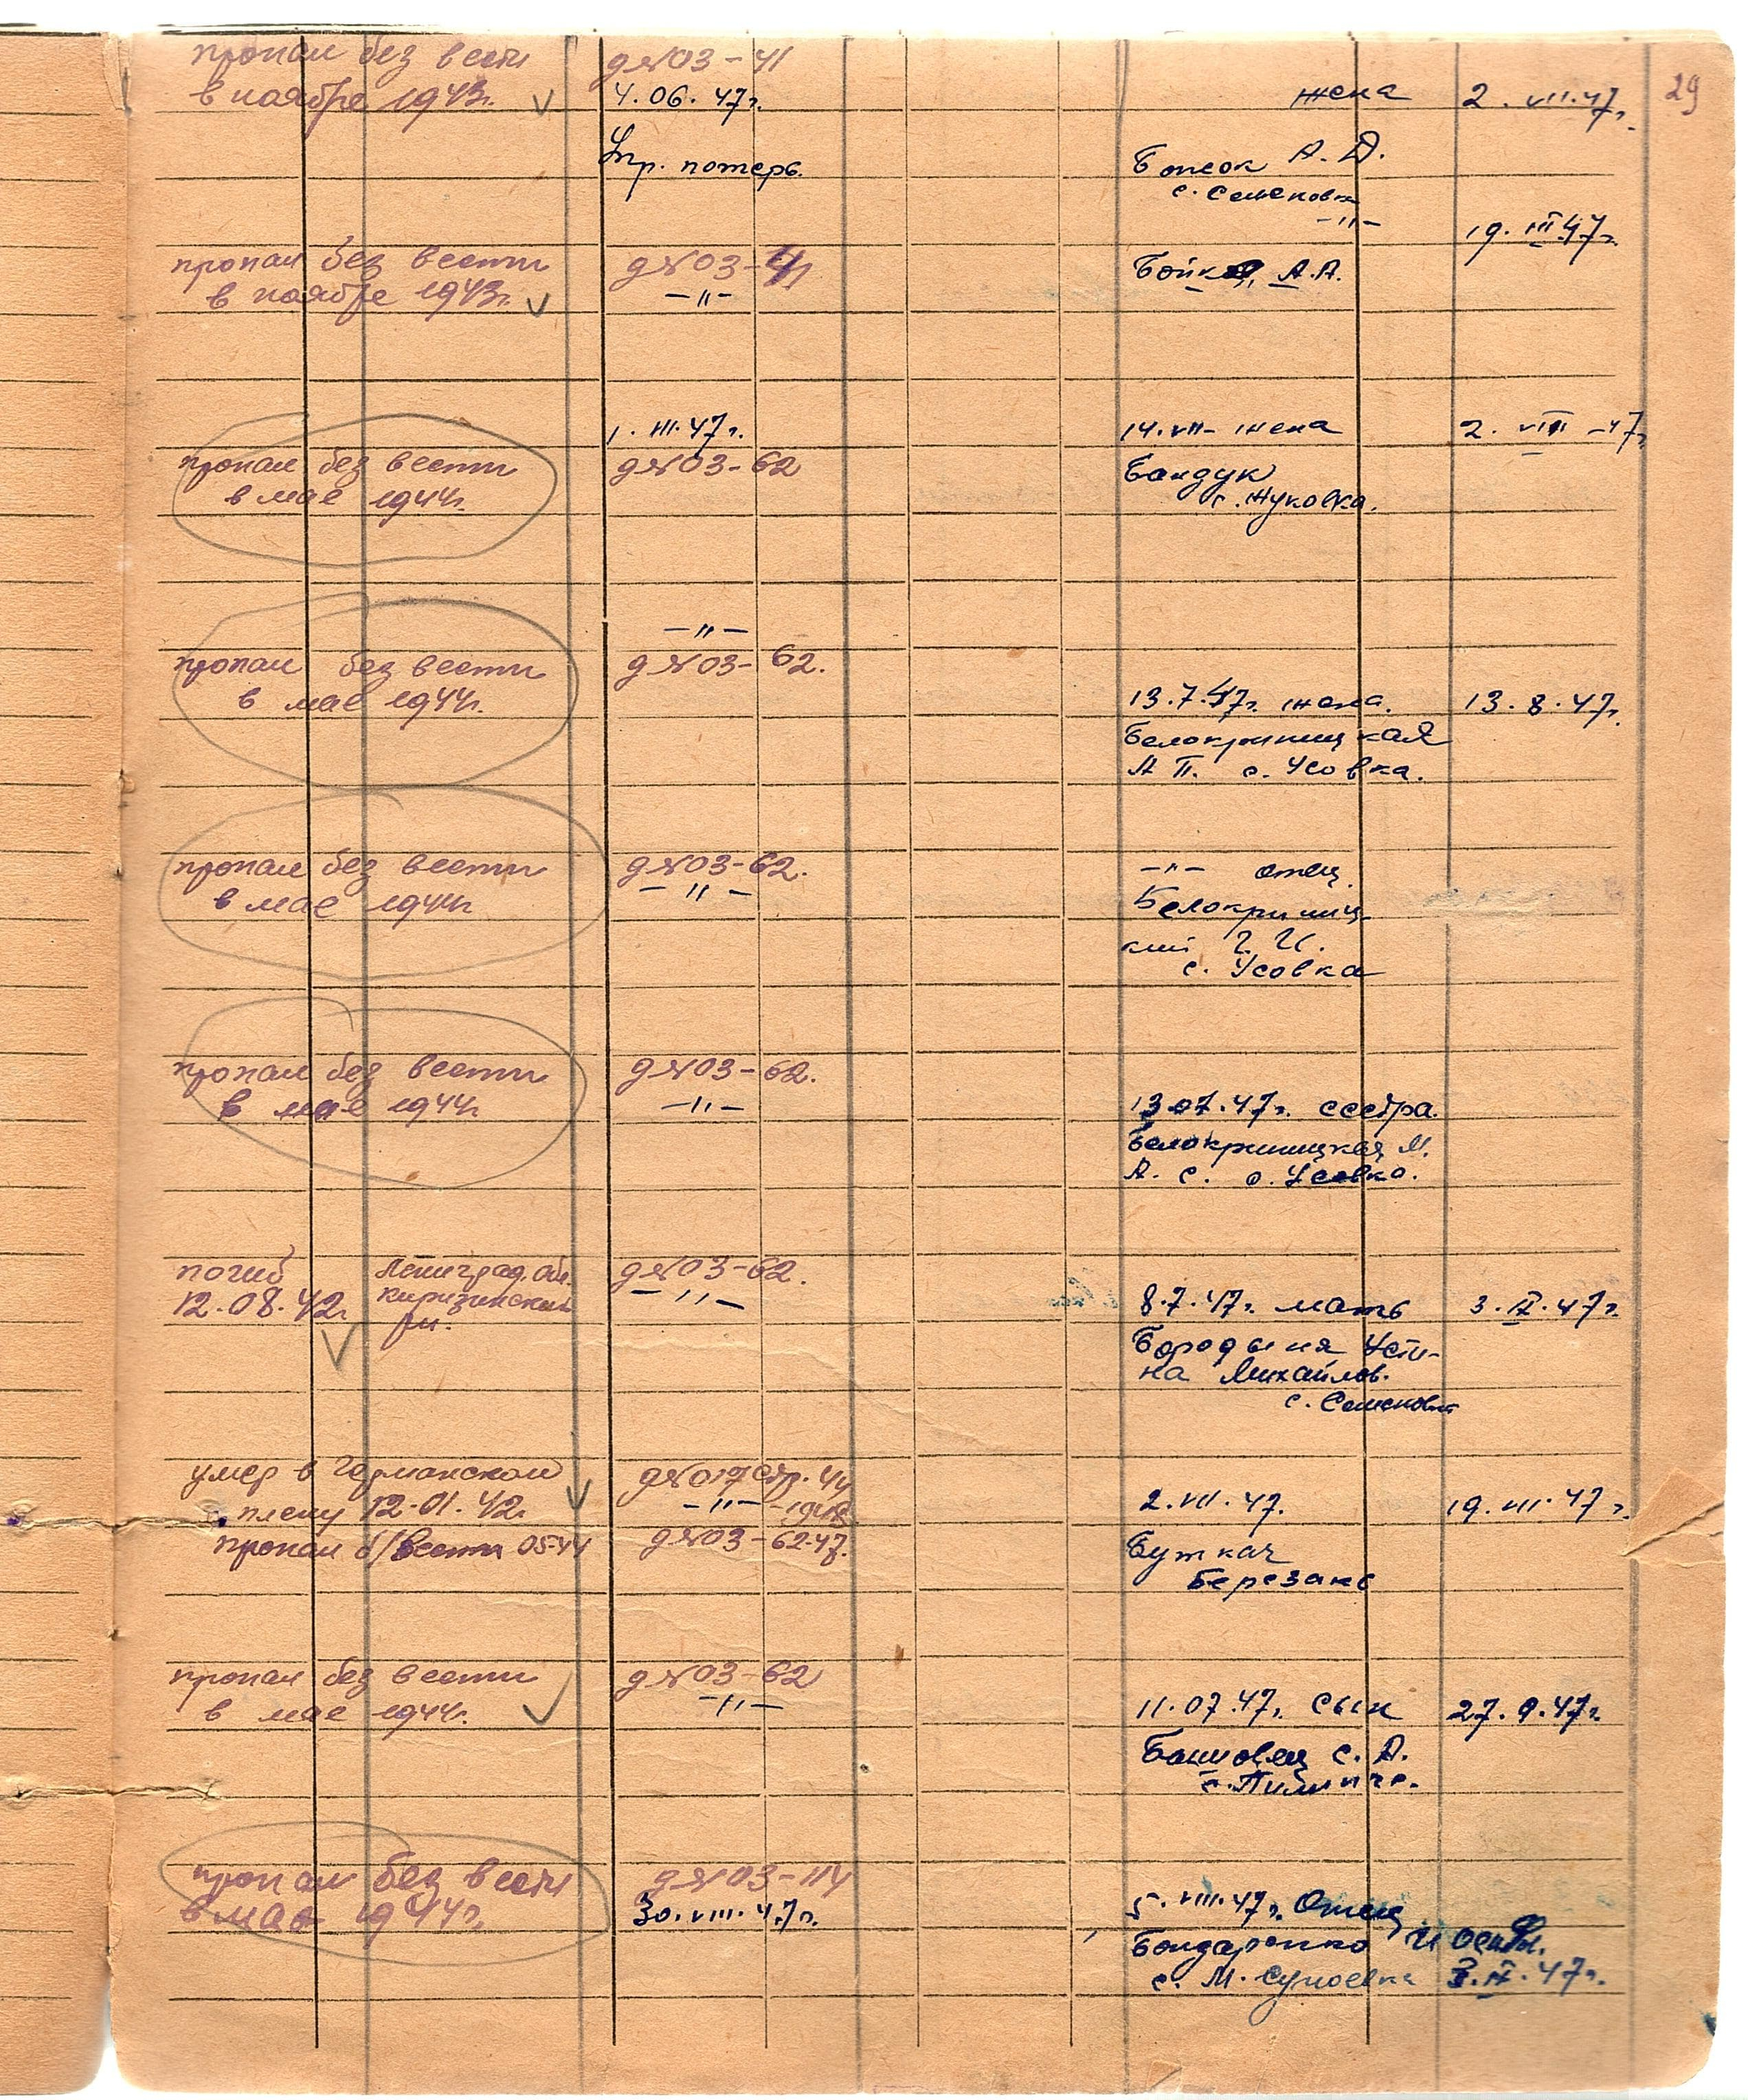 29
пропал без вести
в ноябре 1943г.
д №03-41
4.06.47г.
Упр. потерь.
жена
2. VII.47г.
А. Д.
с. Семеновк
-"-
19. III 47г.
пропал без вести
в ноябре 1943г.
д №03-41
-"-
Бойко, А.А.
пропал без вести
в мае 1944г.
1. III.47г.
д №03-62
14.VII- жена
Бандук
с. Жуковка.
2. VIII -47г
пропал без вести
в мае 1944г.
-"-
д №03-62.
13.7.47г. жена.
Белокриницкая
А П. с. Усовка.
13.8.47г.
пропал без вести
в мае 1944г
д №03-62.
-"-
-"- отец.
Белокриниц-
кий Г. И.
с. Усовка
пропал без вести
в мае 1944г
д №03-62.
-"-
13.07.47г. сестра.
Белокриницкая М.
А. С. с. Усовка.
погиб
12.08.42г
Ленинград. обл.
киришский
рн.
д №03-62.
-"-
8.7.47г. мать
Бородыня Усти-
на Михайлов.
с. Семеновк
3. IX.47г.
умер в Германском
плену 12-01.42г
пропал б/вести 05-44
д №017 стр. 44
-"- -1948
д №03-62-47.
2.VII.47.
Буткач
Березань
19.VIII.47г.
пропал без вести
в мае 1944г.
д №03-62
-"-
11.07.47г. сын
С. А.
27.9.47г.
пропал без вести
в мае 1944г.
д №03-114
30.VIII.47г.
5.VIII.47г. Отец
Бондаренко И
с. М. Супоевка
3.IX.47г.